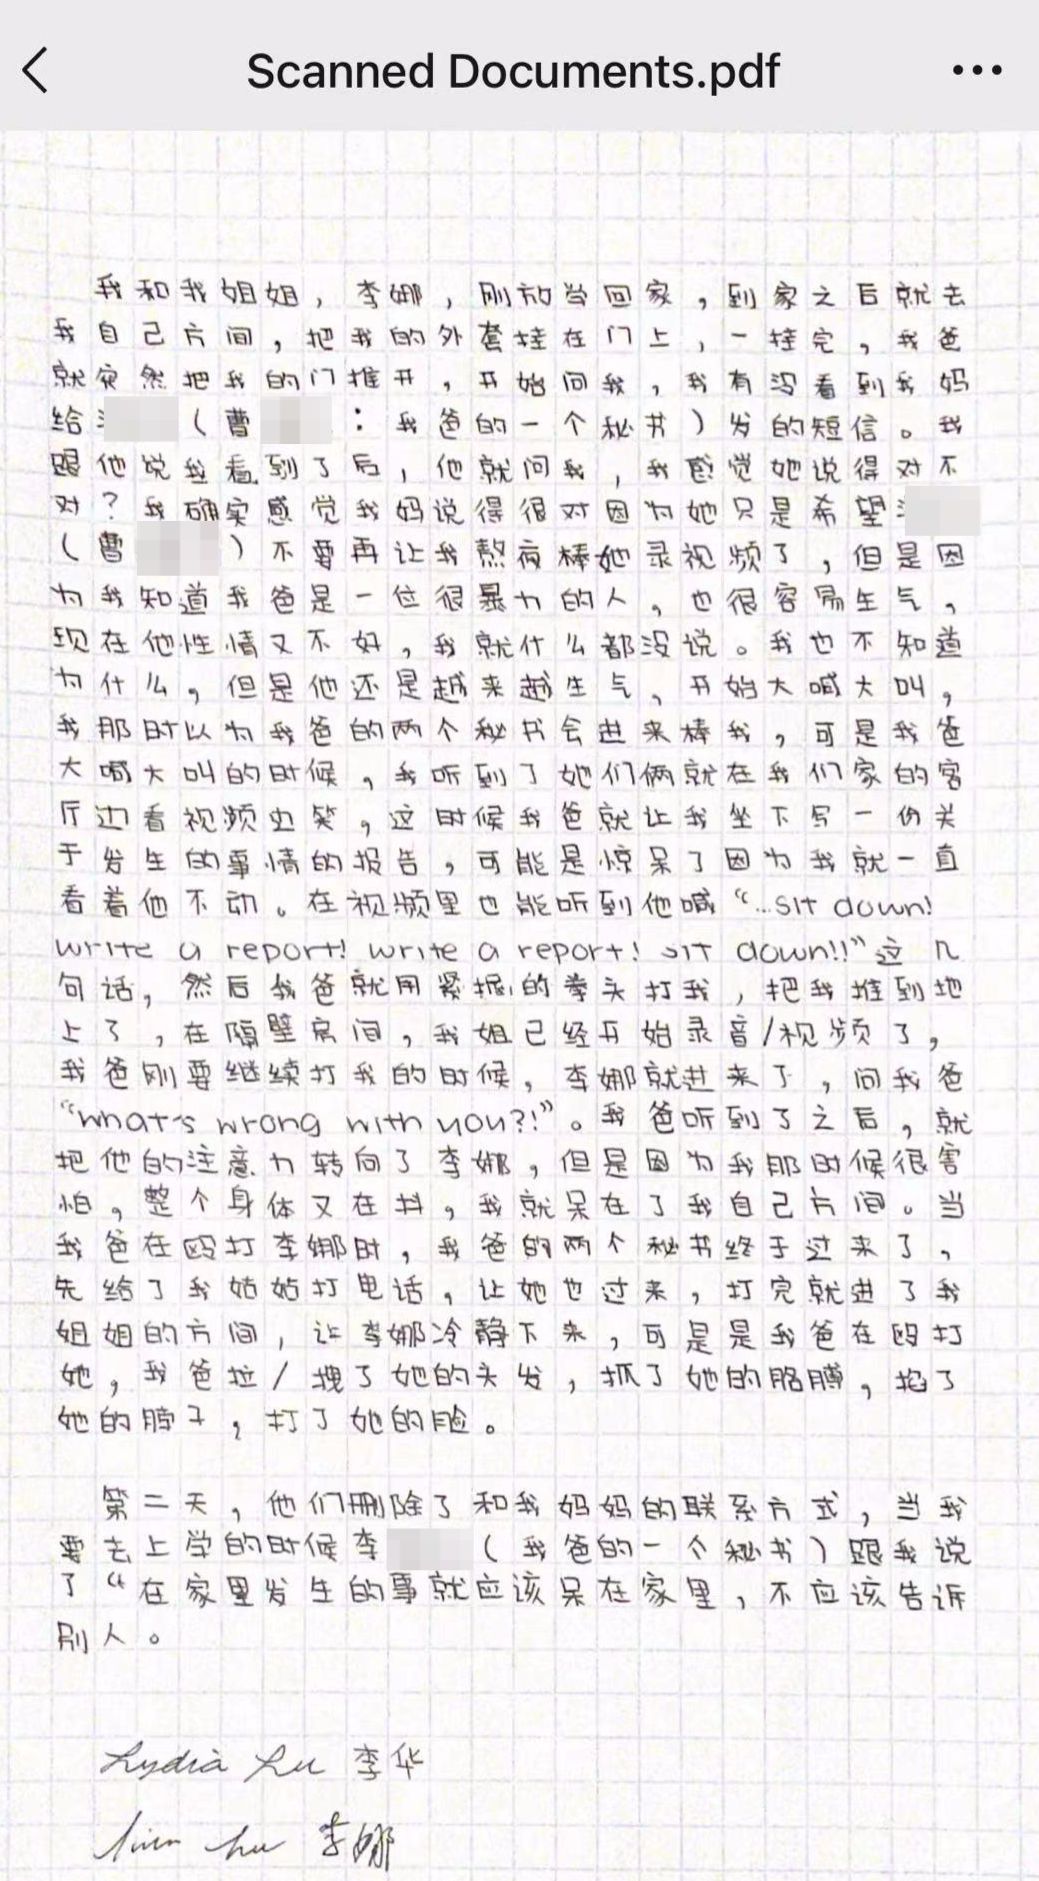 Scanned Documents.pdf
我和我姐姐，李娜，刚放学回家，到家之后就去
我自己房间，把我的外套挂在门上，一挂完，我爸
就突然把我的门推开，开始问我，我有没看到我妈
给（曹：我爸的一个秘书）发的短信。我
跟他说我看到了后，他就问我，我感觉她说得对不
对？我确实感觉我妈说得很对因为她只是希望
（曹）不要再让我熬夜棒她录视频了，但是因
为我知道我爸是一位很暴力的人，也很容易生气，
现在他性情又不好，我就什么都没说。我也不知道
为什么，但是他还是越来越生气，开始大喊大叫，
我那时以为我爸的两个秘书会进来棒我，可是我爸
大喊大叫的时候，我听到了她们俩就在我们家的客
厅边看视频边笑，这时候我爸就让我坐下写一份关
于发生的事情的报告，可能是惊呆了因为我就一直
看着他不动。在视频里也能听到他喊“...sit down!
write a report! write a report! sit down!!”这几
句话，然后我爸就用紧握的拳头打我，把我推到地
上了，在隔壁房间，我姐已经开始录音/视频了，
我爸刚要继续打我的时候，李娜就进来了，问我爸
“what's wrong with you?!”。我爸听到了之后，就
把他的注意力转向了李娜，但是因为我那时候很害
怕，整个身体又在抖，我就呆在了我自己房间。当
我爸在殴打李娜时，我爸的两个秘书终于过来了，
先给了我姑姑打电话，让她也过来，打完就进了我
姐姐的房间，让李娜冷静下来，可是是我爸在殴打
她，我爸拉/拽了她的头发，抓了她的胳膊，掐了
她的脖子，打了她的脸。
第二天，他们删除了和我妈妈的联系方式，当我
要去上学的时候李（我爸的一个秘书）跟我说
了“在家里发生的事就应该呆在家里，不应该告诉
别人。
Lydia 李华
李娜